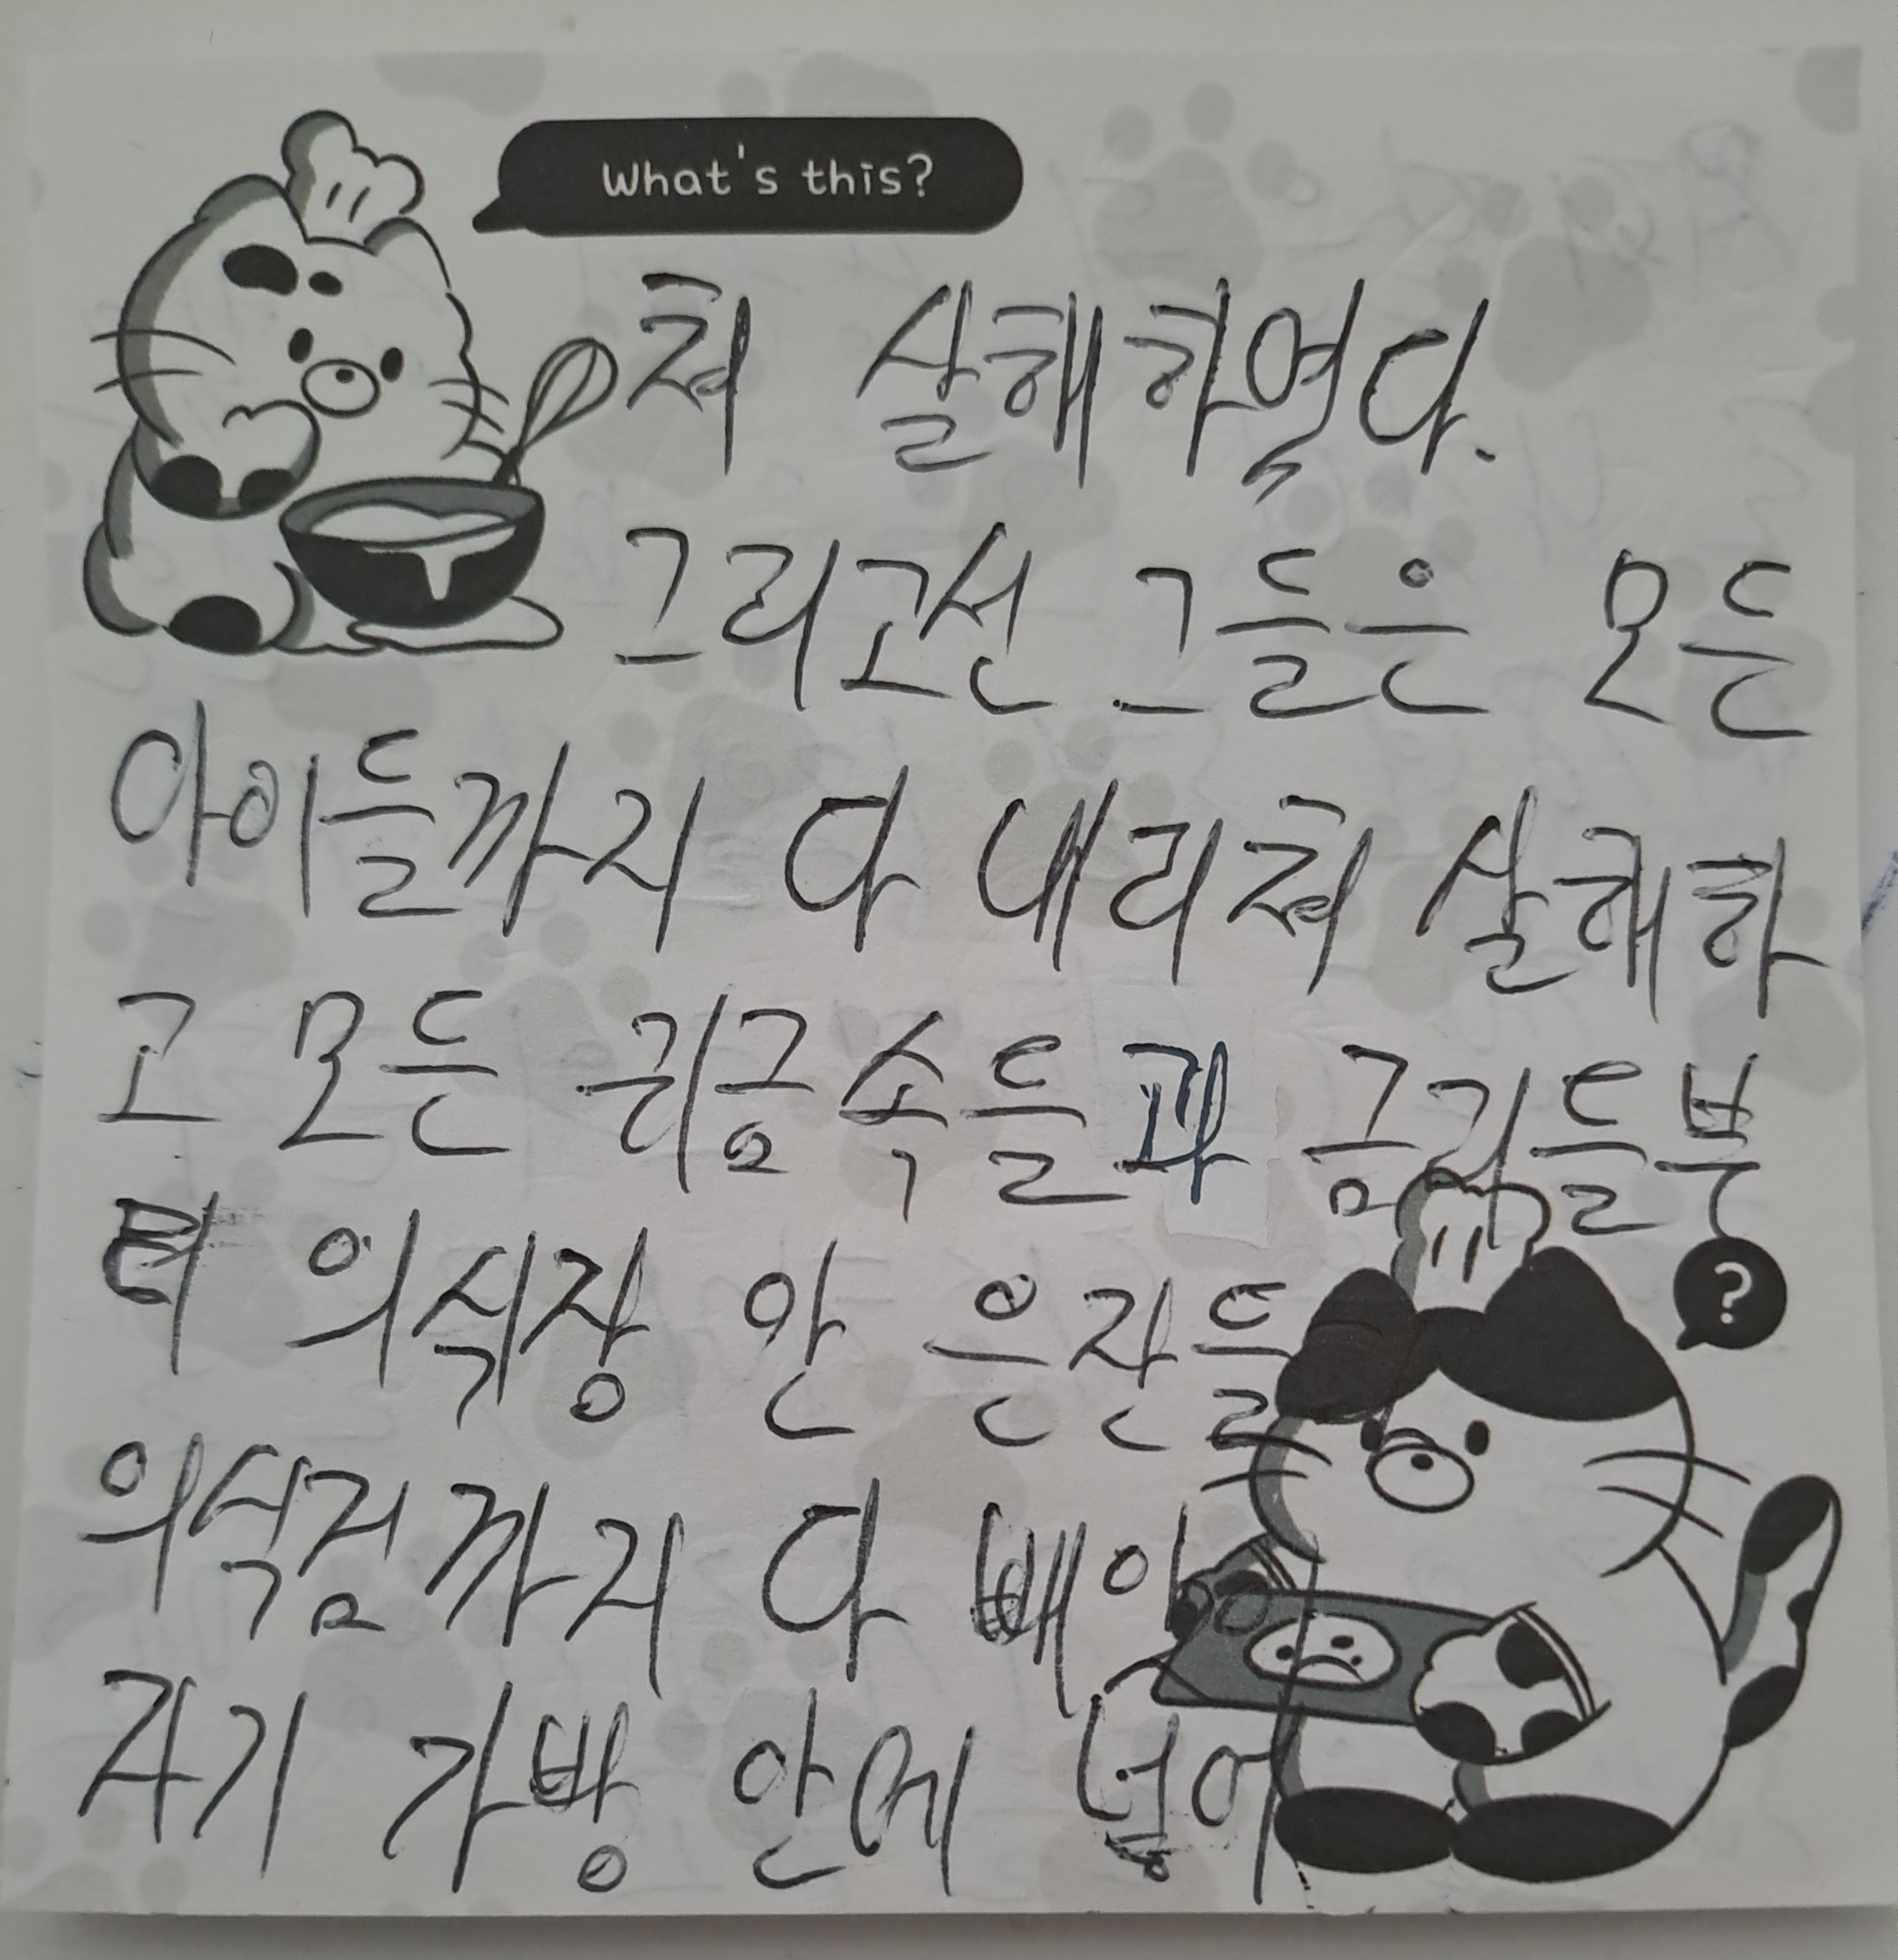 What's this?
쳐 살해하였다.
그리고선 그들은 모든
아이들까지 다 내리쳐 살해하
고 모든 귀금속들과 금김들부
터 의식장 안 은잔들
의식검까지 다 빼아
?
각기 가방 안에 넣어